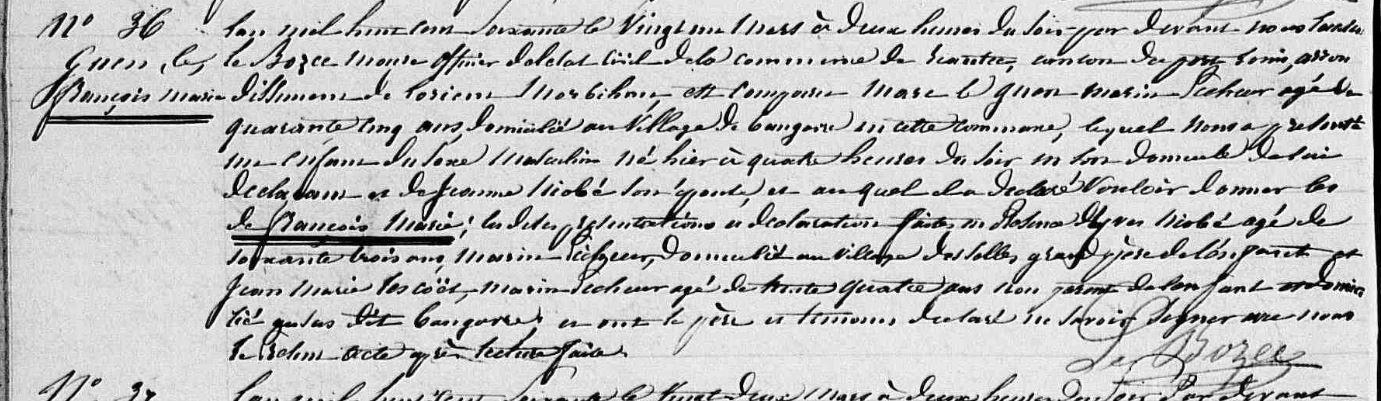 N° 36
Guen, le,
François Marie
L'an mil huit cent soixante le vingt un Mars à deux heures du soir, par devant nous
le Bozec Maire officier de l'etat civil de la commune de Riantec, canton de port Louis, arron
dissement de Lorient Morbihan, est comparu Marc le Guen marin Pêcheur agé de
quarante cinq ans, domicilié au village de bangave en cette commune, lequel nous a présenté
un enfant du sexe masculin né hier à quatre heures du soir en son domicile de lui
déclarant et de Jeanne Nicobé son épouse, et auquel il a déclaré vouloir donner les
de François Marie; les dites présentations et déclaration faites en présence d'Yves Nicobé agé de
soixante trois ans, marin Pêcheur, domicilié au village des Salles grand père de l'enfant et
Jean Marie, marin Pêcheur agé de trente quatre ans non parent de l'enfant et domici
lié au sus dit bangave et ont le père et temoins déclaré ne savoir signer avec nous
le présent acte après lecture faite.
Le Bozec
N° 37
L'an mil huit cent soixante le vingt deux Mars à deux heures du soir par devant